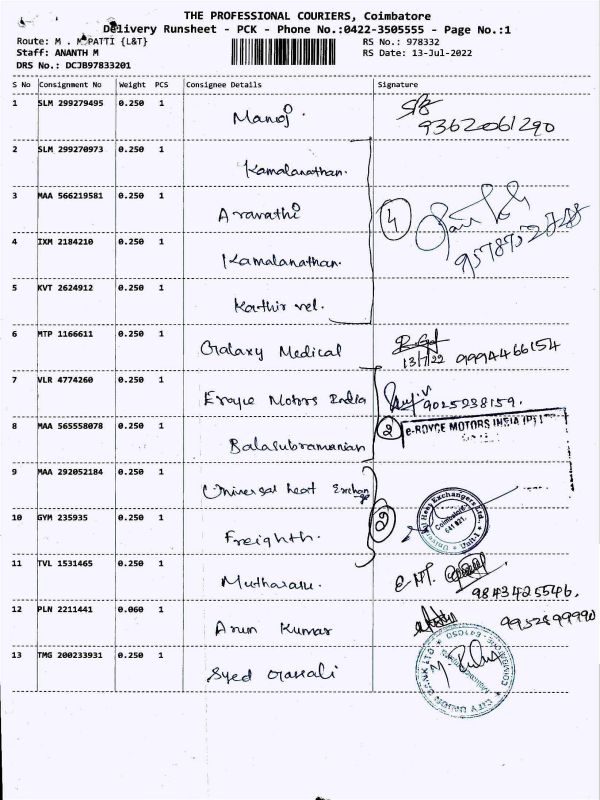 THE PROFESSIONAL COURIERS, Coimbatore
Delivery Runsheet - PCK - Phone No.:0422-3505555 - Page No.:1
Route: M . M.PATTI {L&T} RS No.: 978332
Staff: ANANTH M RS Date: 13-Jul-2022
DRS No.: DCJB97833201
S No Consignment No Weight PCS Consignee Details Signature
1 SLM 299279495 0.250 1 Manoj
9362061290
2 SLM 299270973 0.250 1 Kamalanathan.
3 MAA 566219581 0.250 1 Aravathi 4
9578752788
4 IXM 2184210 0.250 1 Kamalanathan.
5 KVT 2624912 0.250 1 Kathir vel.
6 MTP 1166611 0.250 1 Galaxy Medical
13/7/22 9994466154
7 VLR 4774260 0.250 1 Eroyce Motors India 9025238159.
8 MAA 565558078 0.250 1 Balasubramanian 2 e-ROYCE MOTORS INDIA (P) LTD
9 MAA 292052184 0.250 1 Universal heat Exchange
10 GYM 235935 0.250 1 Freighth. 2 Universal Heat Exchangers Ltd., Unit-1 Coimbatore 641 021.
11 TVL 1531465 0.250 1 Mutharasu.
9843425546.
12 PLN 2211441 0.060 1 Arun Kumar 9952899990
13 TMG 200233931 0.250 1 Syed
CITY UNION BANK LTD COIMBATORE - 641050